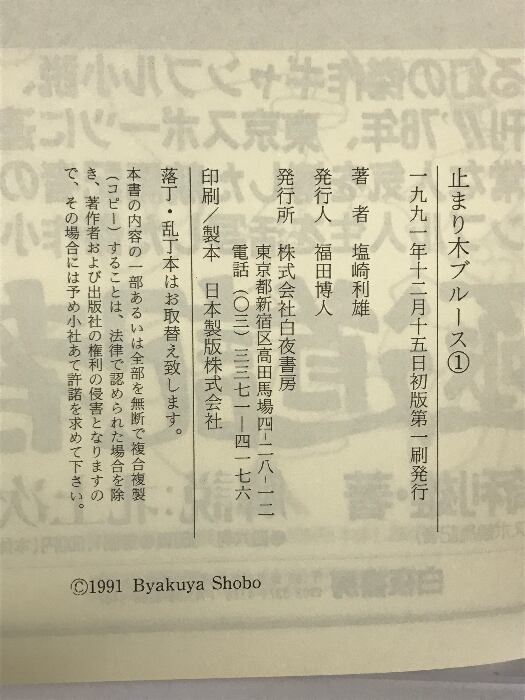 止まり木ブルース①
一九九一年十二月十五日初版第一刷発行
著　者　塩崎利雄
発行人　福田博人
発行所　株式会社白夜書房
東京都新宿区高田馬場四-二八-一二
電話（〇三）三三七一―四一七六
印刷／製本　日本製版株式会社
落丁・乱丁本はお取替え致します。
本書の内容の一部あるいは全部を無断で複合複製
（コピー）することは、法律で認められた場合を除
き、著作者および出版社の権利の侵害となりますの
で、その場合には予め小社あて許諾を求めて下さい。
©1991 Byakuya Shobo